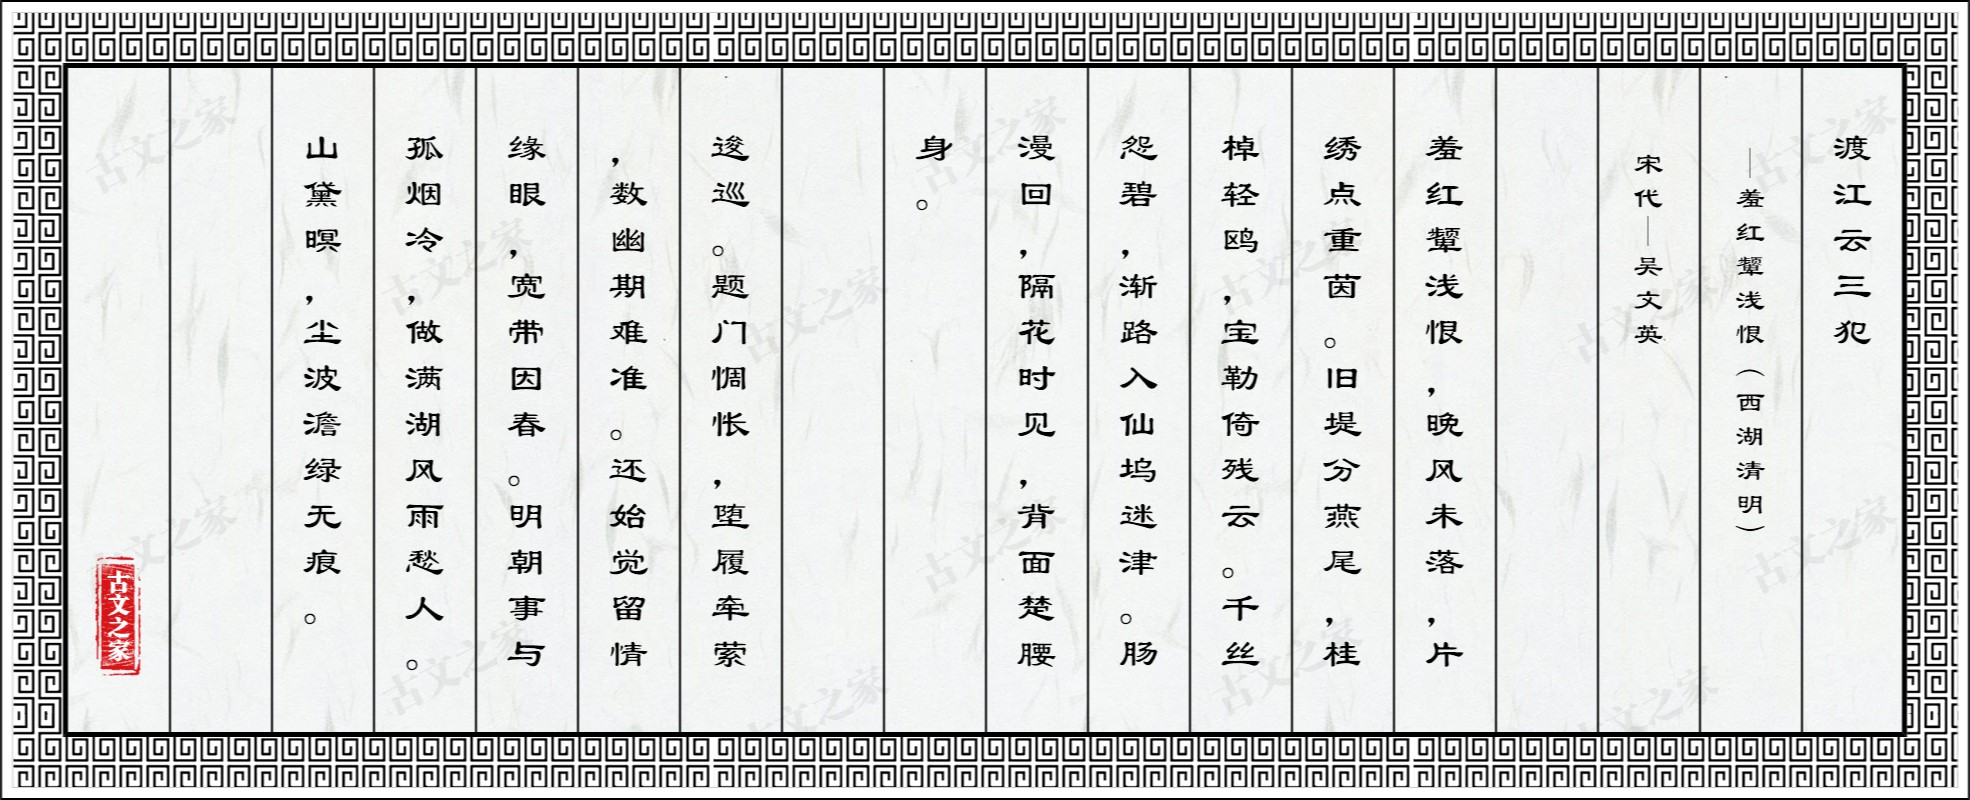 渡江云三犯
—羞红颦浅恨（西湖清明）
宋代—吴文英
羞红颦浅恨，晚风未落，片
绣点重茵。旧堤分燕尾，桂
棹轻鸥，宝勒倚残云。千丝
怨碧，渐路入仙坞迷津。肠
漫回，隔花时见，背面楚腰
身。
逡巡。题门惆怅，堕履牵萦
，数幽期难准。还始觉留情
缘眼，宽带因春。明朝事与
孤烟冷，做满湖风雨愁人。
山黛暝，尘波澹绿无痕。
古文之家